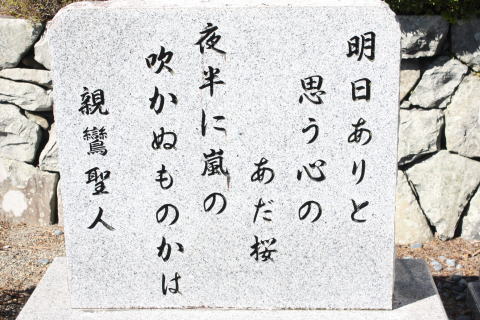 明日ありと
思う心の
あだ桜
夜半に嵐の
吹かぬものかは
親鸞聖人